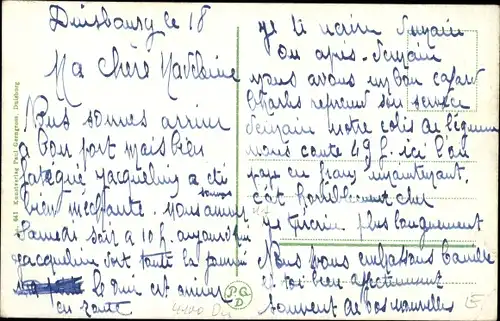 Duisbourg le 18
Ma chère Madeleine
Nous sommes arrivu
a bon port mais bien
fatigué Jacqueline a été
toujours
bien méchante. nous avons
Samedi soir a 10 h. aujourd'hui
Jacqueline dort toute la journée
le Dui est
en route
je ti ecrirai demain
ou apris-demain
nous avons un bon cafard
Charles reprend son service
demain notre colis de légumes
nous coute 49 f. ici l'on
paye en franc maintenant.
c'est horriblement cher
je t'ecrirai plus longuement
Nous vous embrassons Camille
et toi bien affectueusement
souvent de vos nouvelles
No. 661 Kunstverlag Paul Duisburg
P G D
4100 Du